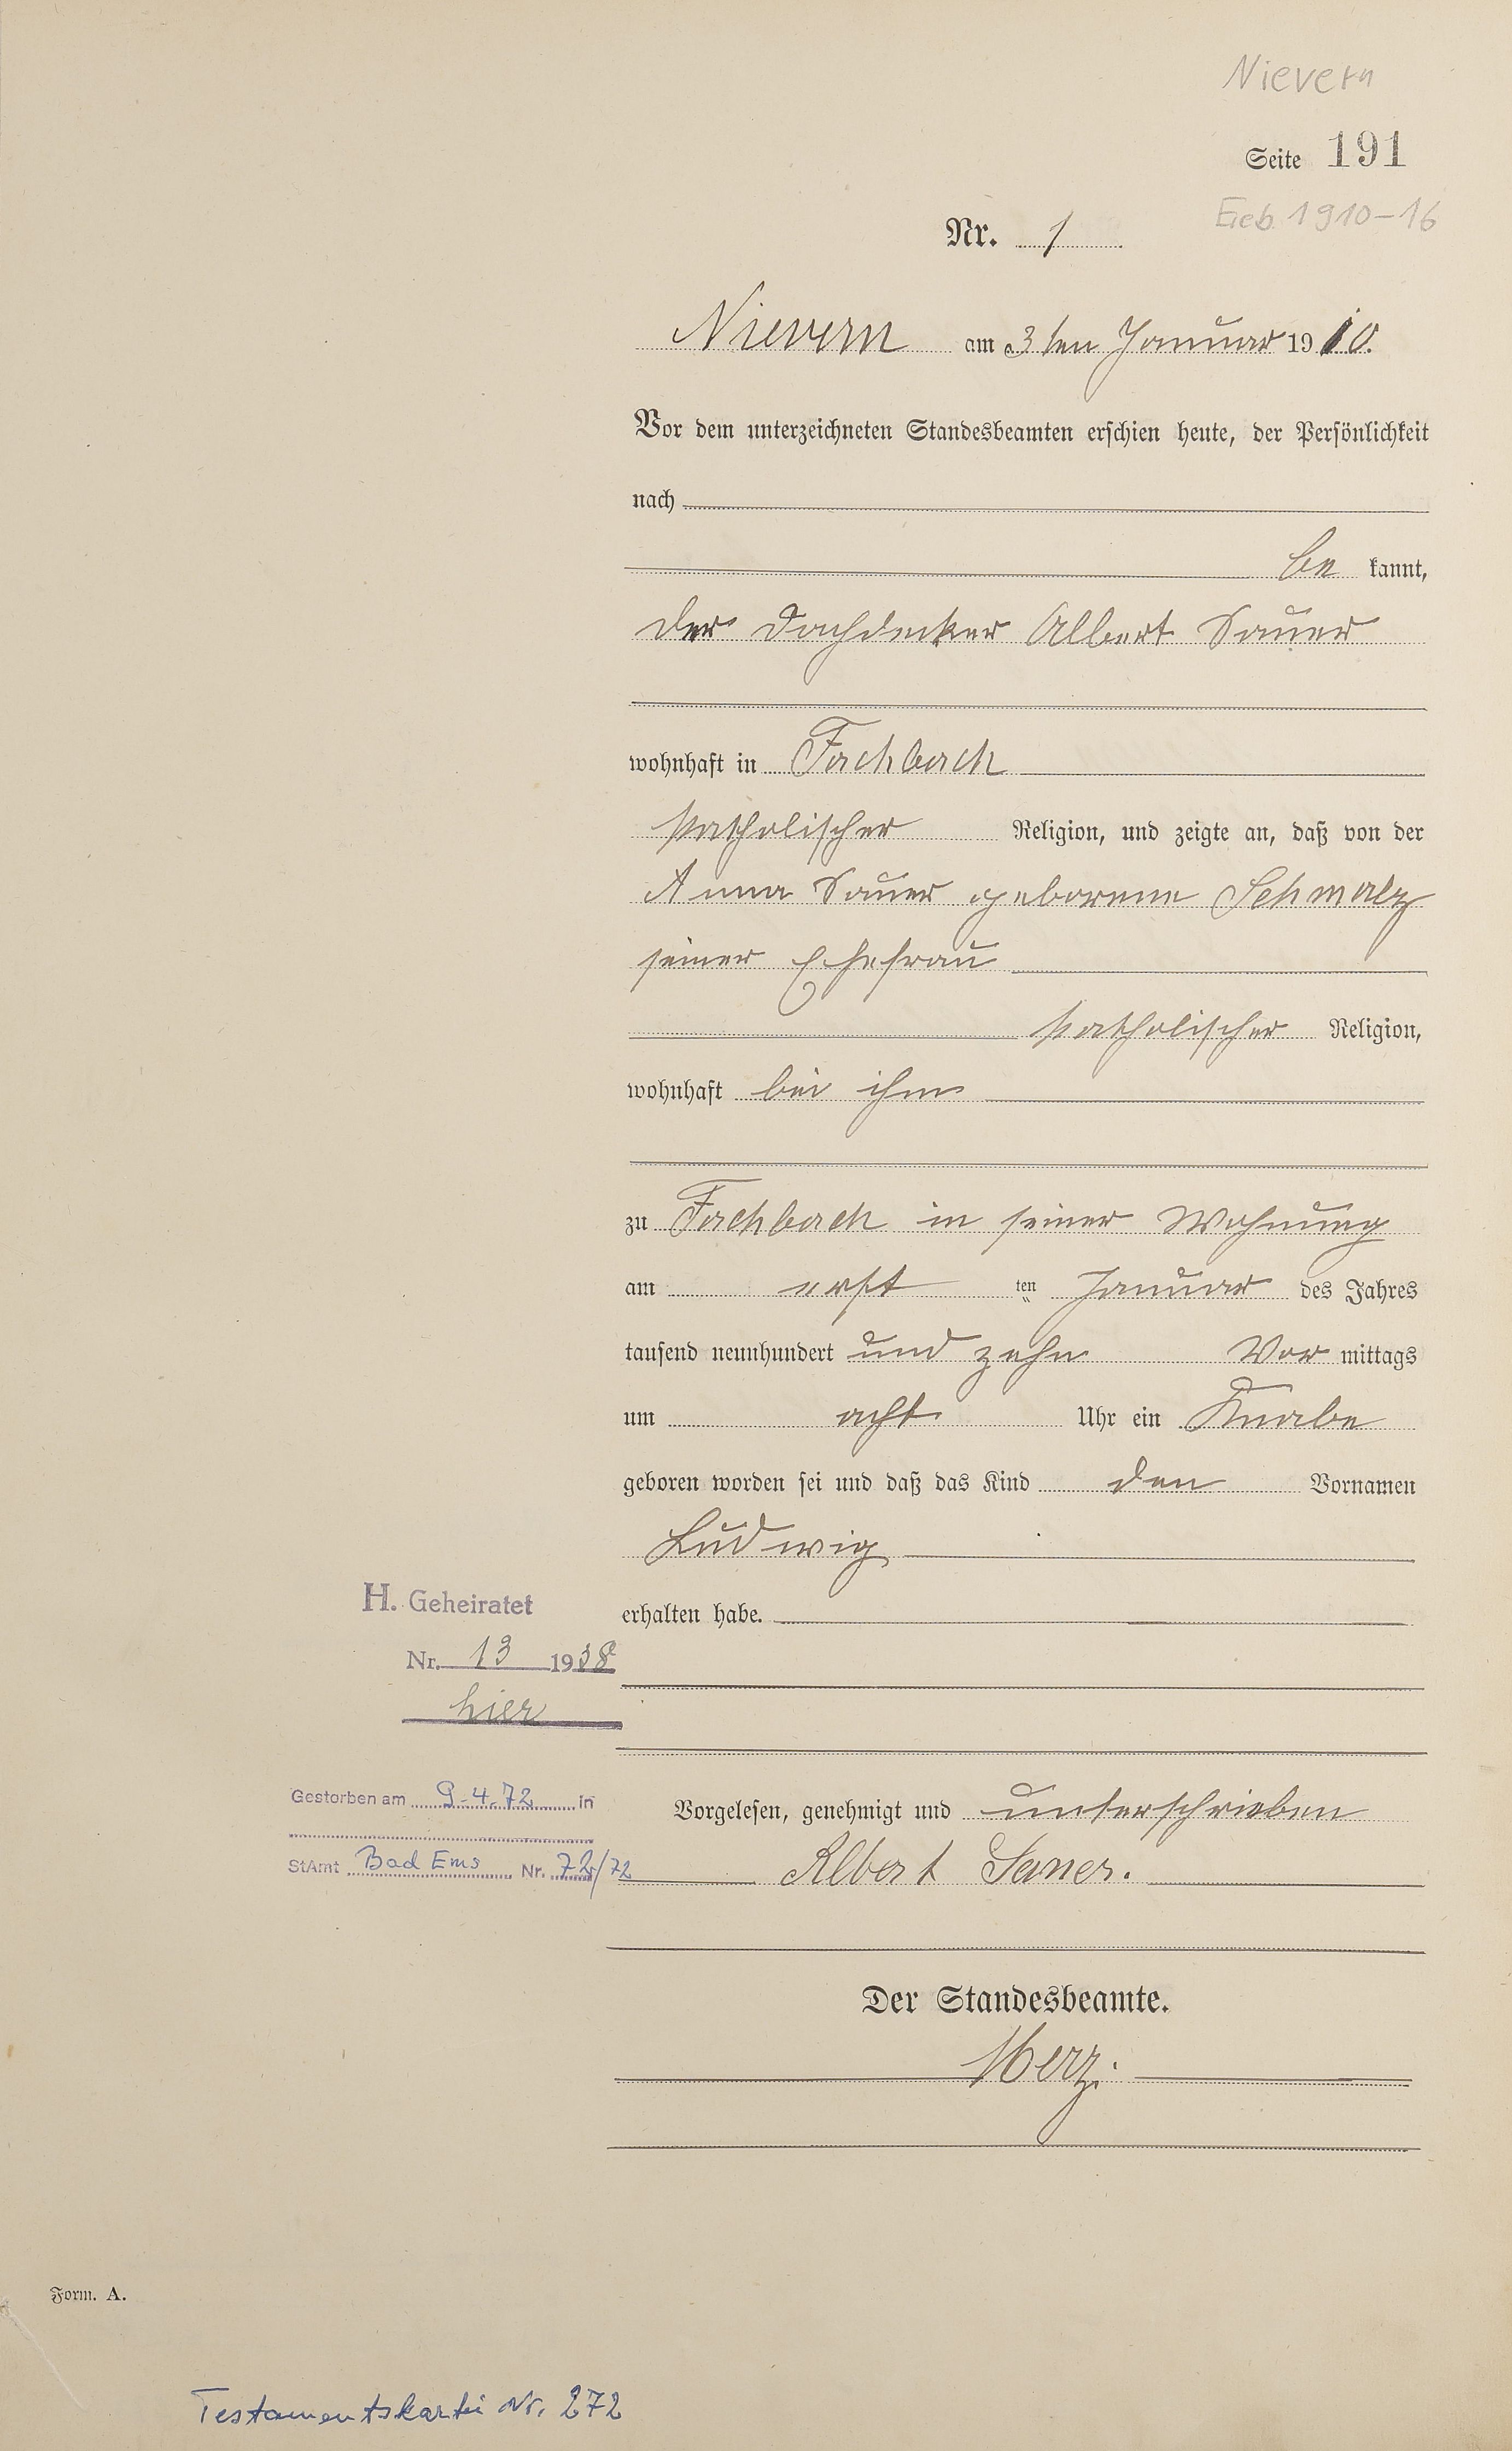 Nievern
Seite 191
Geb. 1910-16
Nr. 1
Nievern am 3ten Januar 1910.
Vor dem unterzeichneten Standesbeamten erschien heute, der Persönlichkeit
nach
be kannt,
der Dachdecker Albert Sauer
wohnhaft in Fachbach
katholischer Religion, und zeigte an, daß von der
Anna Sauer geborene Schmalz
seiner Ehefrau
katholischer Religion,
wohnhaft bei ihm
zu Fachbach in seiner Wohnung
am erst ten Januar des Jahres
tausend neunhundert und zehn Vor mittags
um acht Uhr ein Knabe
geboren worden sei und daß das Kind den Vornamen
Ludwig
erhalten habe.
H. Geheiratet
Nr. 13 1938
hier
Gestorben am 9.4.72 in
StAmt Bad Ems Nr. 72/72
Vorgelesen, genehmigt und unterschrieben
Albert Sauer.
Der Standesbeamte.
Herz.
Form. A.
Testamentskartei Nr. 272